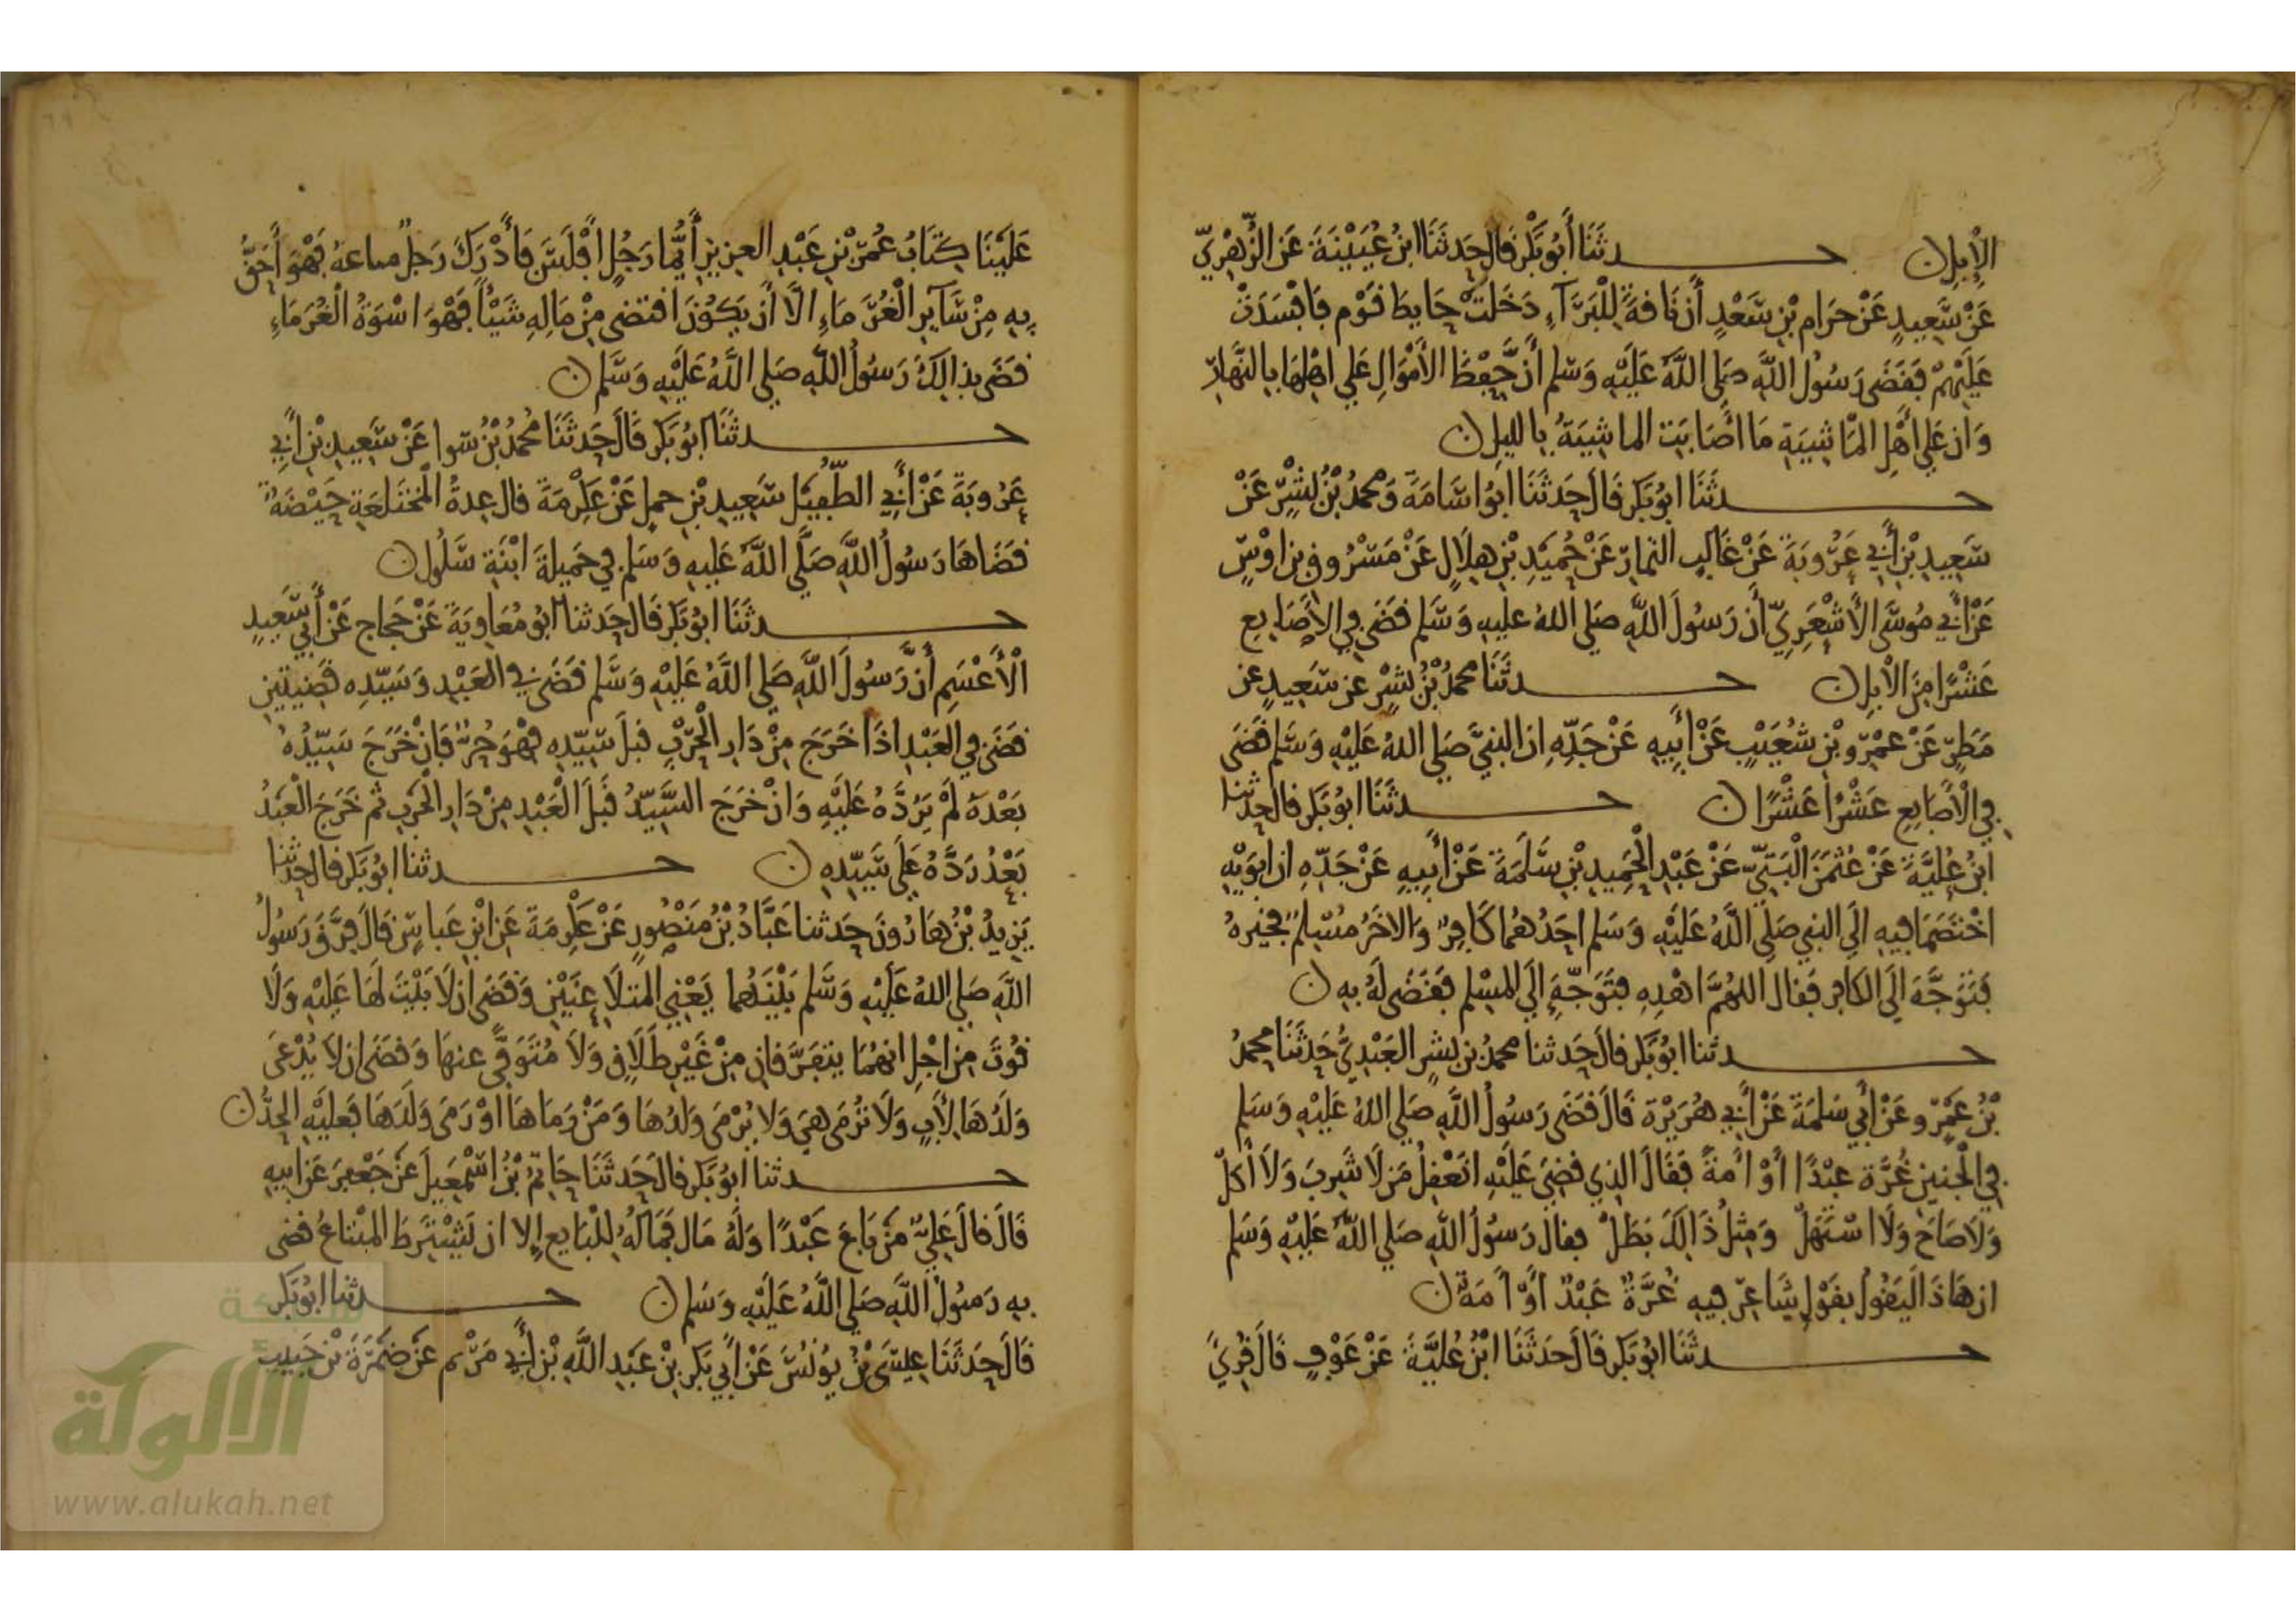 الْإِبِلِ ن حدثَنَا أَبُو بَكْرٍ قَالَ حَدثَنَا ابنُ عُيَيْنَةَ عَنِ الزُّهْرِيِّ
عَنْ سَعِيدٍ عَنْ حَرَامِ بْنِ سَعْدٍ أَن نَاقَةً لِلْبَرَآءِ دَخَلَتْ حَايِطَ قَوْمٍ فَافْسَدَتْ
عَلَيْهِمْ فَقَضَى رَسُولُ اللَّهِ صَلَى اللَّهُ عَلَيْهِ وَسَلم أَنَّ حِفْظَ الأَمْوَالِ عَلى اهْلِهَا بِالنَّهَارِ
وَان عَلى أَهْلِ الْمَاشِيَةِ مَا أَصَابَتِ الماشِيَةُ بِالليلِ ن
حدثَنَا ابُو بَكرٍ قَالَ حَدثَنَا ابُو اسَامَةَ وَمحمدُ بْنُ بِشْرٍ عَنْ
سَعِيدِ بْنِ أَبِي عَرُوبَةَ عَنْ غَالِبٍ التمارِ عَنْ حُمَيْدِ بْنِ هِلَالٍ عَنْ مَسْرُوقِ بنِ اوْسٍ
عَنْ أَبِي مُوسَى الأَشْعَرِيِّ أَن رَسُولَ اللَّهِ صَلى اللهُ عليهِ وَسَلم قَضَى في الأَصَابِعِ
عَشْرًا مِنَ الْابِلِ ن حدثَنَا محمدُ بْنُ بِشْرٍ عن سَعِيدٍ عن
مَطَرٍ عَنْ عَمْرِو بْنِ شُعَيْبٍ عَنْ أَبِيهِ عَنْ جَدِّهِ ان النبيَّ صَلى اللهُ عَلَيْهِ وَسَلم قَضَى
فِي الْأَصَابِعِ عَشْرًا عَشْرًا ن حدثَنَا ابُو بَكرٍ قال حدثنا
ابنُ عُلَيَّةَ عَنْ عُثْمَنَ الْبَتِيِّ عَنْ عَبْدِ الْحَمِيدِ بْنِ سَلَمَةَ عَنْ أَبِيهِ عَنْ جَدِّهِ ان ابَوَيْهِ
اخْتَصَمَا فِيهِ الَى النبي صَلى اللَّهُ عَلَيْهِ وَسَلم احَدُهُمَا كَافِرٌ وَالاخَرُ مُسْلِمٌ فخيرهُ
فَتَوَجَّهَ الَى الكافرِ فَقال اللهُمَّ اهْدِهِ فتَوَجَّهَ الَى المسْلِمِ فَقَضَى لَهُ بِهِ ن
حدثنا ابُو بَكرٍ قالَ حَدثنا محمدُ بن بشرٍ العَبْدِيُّ حَدَثَنَا محمدُ
بْنُ عَمْرٍو عَنْ أَبِي سَلَمَةَ عَنْ أَبِي هُرَيْرَةَ قَالَ قَضَى رَسُولُ اللَّهِ صَلى اللهُ عَلَيْهِ وَسَلم
فِي الْجنينِ غُرَّة عبْدًا أوْ أَمَةً فَقَالَ الذِي قضِيَ عَلَيْهِ انَعْقِلُ مَن لَا شَرِبَ وَلَا أَكَلَ
وَلَا صَاحَ وَلَا اسْتَهَلْ وَمِثْلُ ذَالِكَ بَطَلْ فقالَ رَسُولُ اللَّهِ صَلى اللَّهُ عَلَيْهِ وَسَلم
ان هَاذَا لَيَقُولُ بِقَوْلِ شَاعِرٍ فِيهِ غُرَّةٌ عَبْدٌ اوْ أَمَةٌ ن
حدثَنَا ابُو بَكرٍ قَالَ حَدَثَنَا ابْنُ عُلَيَّةَ عَنْ عَوْفٍ قَالَ قُرِئَ
عَلَيْنَا كِتَابُ عُمَرَ بْنِ عَبْدِ العزيزِ أَيُّمَا رَجُلٍ افْلَسَ فَأَدْرَكَ رَجُلٌ متاعَهُ فَهْوَ أَحَقُّ
بِهِ مِنْ سَآيِرِ الْغُرَمَاءِ الَّا أَن يَكُونَ اقتضى مِنْ مَالِهِ شَيْئًا فَهْوَ اسْوَةُ الْغُرَمَاءِ
قَضَى بِذالِكَ رَسُولُ اللَّهِ صَلى اللَّهُ عَلَيْهِ وَسَلم ن
حدثَنَا ابُو بَكرٍ قَالَ حَدَثَنَا مُحمدُ بْنُ سَوا عَنْ سَعِيدِ بْنِ أَبِي
عَرُوبَةَ عَنْ أَبِي الطُّفَيْلِ سَعِيدِ بْنِ حملٍ عَنْ عِكْرِمَةَ قال عِدةُ الْمُختَلعَةِ حَيْضَةٌ
قَضَاهَا رَسُولُ اللَّهِ صَلَّى اللَّهُ عَلَيهِ وَسَلم في جَمِيلَةَ ابْنَةِ سَلُول ن
حدثَنَا ابُو بَكرٍ قَالَ حَدثنا ابُو مُعَاوِيَةَ عَنْ حَجاجٍ عَنْ أَبِي سَعِيدٍ
الْأَعْسَمِ أَنَّ رَسُولَ اللَّهِ صَلى اللَّهُ عَلَيْهِ وَسَلم قَضَى في العَبْدِ وَسَيِّدِهِ قَضِيتَيْنِ
قَضَى في العَبْدِ اذَا خَرَجَ مِنْ دَارِ الْحَرْبِ قبلَ سَيِّدِهِ فَهْوَ حُرٌّ فَإِنْ خَرَجَ سَيِّدُهُ
بَعْدَهُ لَمْ يَرُدَّهُ عَلَيْهِ وَانْ خَرَجَ السَّيِّدُ قَبلَ الْعَبْدِ مِنْ دَارِ الْحَرْبِ ثم خَرَجَ الْعَبْدُ
بَعْدُ رَدَّهُ عَلَى سَيِّدِهِ ن حدثنا ابُو بَكرٍ قال حدثنا
يَزِيدُ بْنُ هَارُونَ حَدثنا عَبَّادُ بْنُ مَنْصُورٍ عَنْ عِكْرِمَةَ عَنِ ابْنِ عَباسٍ قَالَ فَرَّقَ رَسُولُ
اللَّهِ صَلى اللهُ عَلَيْهِ وَسَلم بَيْنَهُما يَعْنِي المتلَاعِنَيْنِ وَقَضَى ان لَا بَيْتَ لَهَا عَلَيْهِ وَلَا
قُوتَ مِن اجْلِ انهُمَا يتفرَّقانِ مِنْ غَيْرِ طَلَاقٍ وَلَا مُتَوَفًّى عنهَا وَقضَى ان لَا يُدْعَى
وَلَدُهَا لِأَبٍ وَلَا تُرْمَى هِيَ وَلا يُرْمَى وَلَدُهَا وَمَنْ رَمَاهَا اوْ رَمَى وَلَدَهَا فَعليْهِ الحدُّ ن
حدثنا ابُو بَكرٍ قالَ حَدثَنَا حَاتِمُ بْنُ اسْمَعِيلَ عَنْ جَعْفرٍ عَن ابيهِ
قَالَ قالَ عَلِيٌّ مَنْ بَاعَ عَبْدًا وَلَهُ مَال فَمَالُهُ لِلْبَايِعِ إِلا ان يَشْتَرِطَ المُبْتَاعُ قضى
بِهِ رَسُولُ اللَّهِ صَلى اللَّهُ عَلَيْهِ وَسَلم ن حدثنا ابُو بَكرٍ
قَالَ حَدَثَنَا عِيسَى بْنُ يُونُسَ عَنْ أَبِي بَكرِ بْنِ عَبْدِ اللَّهِ بْنِ أَبِي مَرْيَمَ عَنْ ضَمْرَةَ بْنِ حَبِيبٍ
شبكة
الألوكة
www.alukah.net